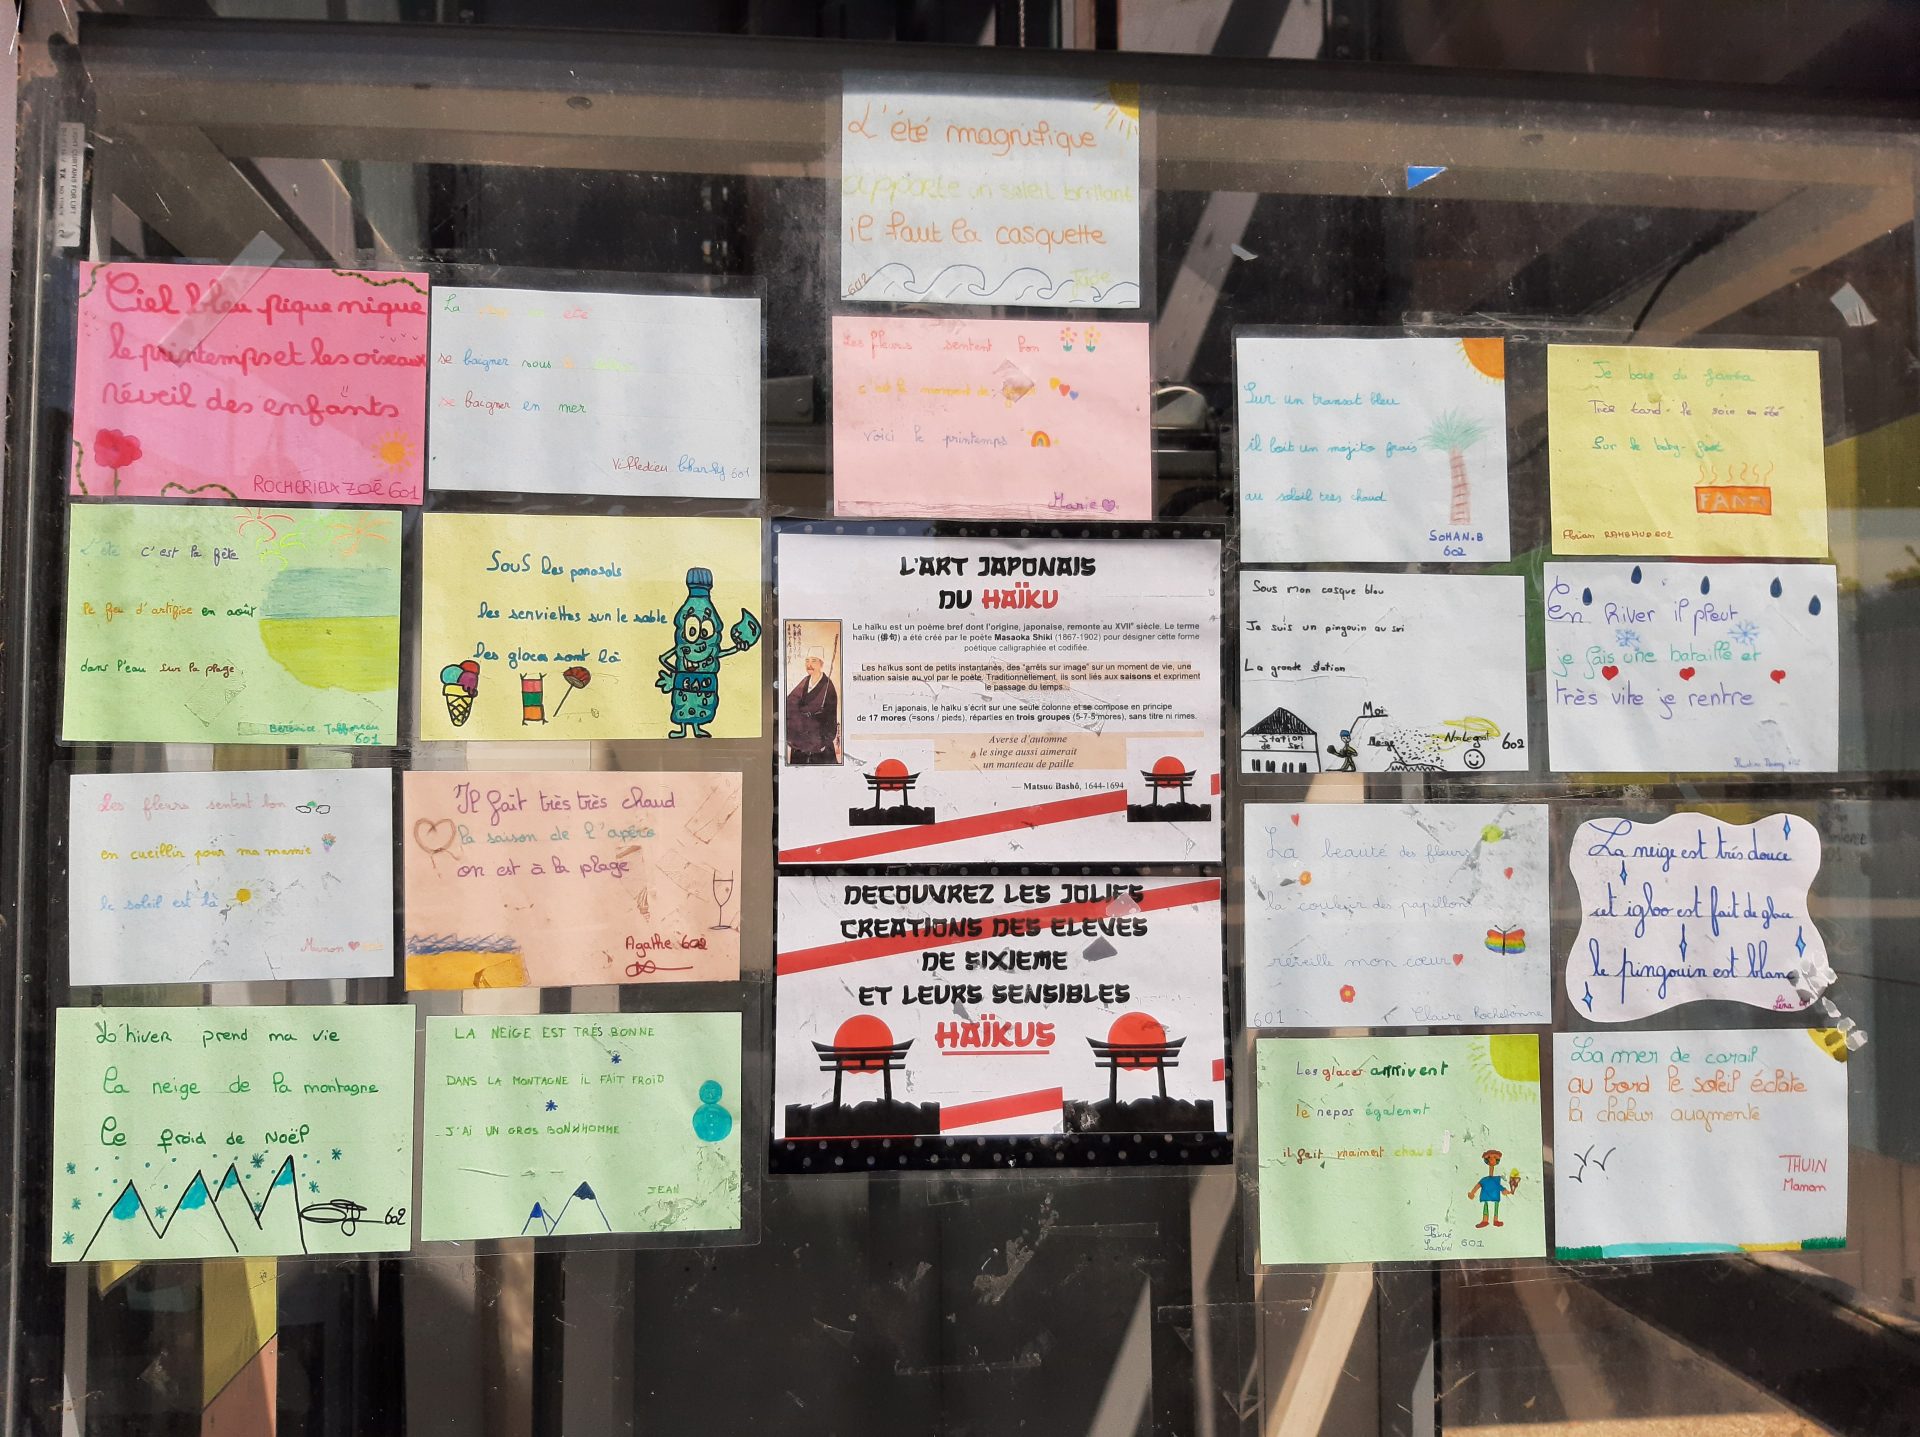 L'été magnifique
apporte un soleil brillant
il faut la casquette
602
Ciel bleu pique nique
le printemps et les oiseaux
réveil des enfants
ROCHERIEUX ZOÉ 601
La
été
se baigner sous
se baigner en mer
Villedieu Charly 601
Les fleurs sentent bon
c'est le moment de
voici le printemps
Marie
Sur un transat bleu
il boit un mojito frais
au soleil très chaud
SOHAN.B
602
Je bois du
Très tard le soir en été
Sur le baby-foot
FANTA
Florian RAMBAUD 602
L'été c'est la fête
le feu d'artifice en août
dans l'eau sur la plage
Bérénice Taffoneau
601
Sous les parasols
Des serviettes sur le sable
Des glaces sont là
L'ART JAPONAIS
DU HAÏKU
Le haïku est un poème bref dont l'origine, japonaise, remonte au XVIIe siècle. Le terme
haïku (俳句) a été créé par le poète Masaoka Shiki (1867-1902) pour désigner cette forme
poétique calligraphiée et codifiée.
Les haïkus sont de petits instantanés, des "arrêts sur image" sur un moment de vie, une
situation saisie au vol par le poète. Traditionnellement, ils sont liés aux saisons et expriment
le passage du temps.
En japonais, le haïku s'écrit sur une seule colonne et se compose en principe
de 17 mores (=sons / pieds), réparties en trois groupes (5-7-5 mores), sans titre ni rimes.
Averse d'automne
le singe aussi aimerait
un manteau de paille
— Matsuo Bashô, 1644-1694
Sous mon casque bleu
Je suis un pingouin au ski
La grande station
Moi
Station
de Ski
Neige
602
en hiver il pleut
je fais une bataille et
très vite je rentre
Les fleurs sentent bon
en cueillir pour ma mamie
le soleil est là
Manon
Il fait très très chaud
la saison de l'apéro
on est à la plage
Agathe 602
DECOUVREZ LES JOLIES
CREATIONS DES ELEVES
DE SIXIEME
ET LEURS SENSIBLES
HAÏKUS
La beauté des fleurs
la couleur des papillons
réveille mon cœur
601 Claire Rochebonne
La neige est très douce
cet igloo est fait de glace
le pingouin est blanc
Léna
L'hiver prend ma vie
la neige de la montagne
Le froid de Noël
602
LA NEIGE EST TRÈS BONNE
DANS LA MONTAGNE IL FAIT FROID
J'AI UN GROS BONHOMME
JEAN
Les glaces arrivent
le repos également
il fait vraiment chaud
Favre
Samuel 601
La mer de corail
au bord le soleil éclate
la chaleur augmente
THUIN
Manon